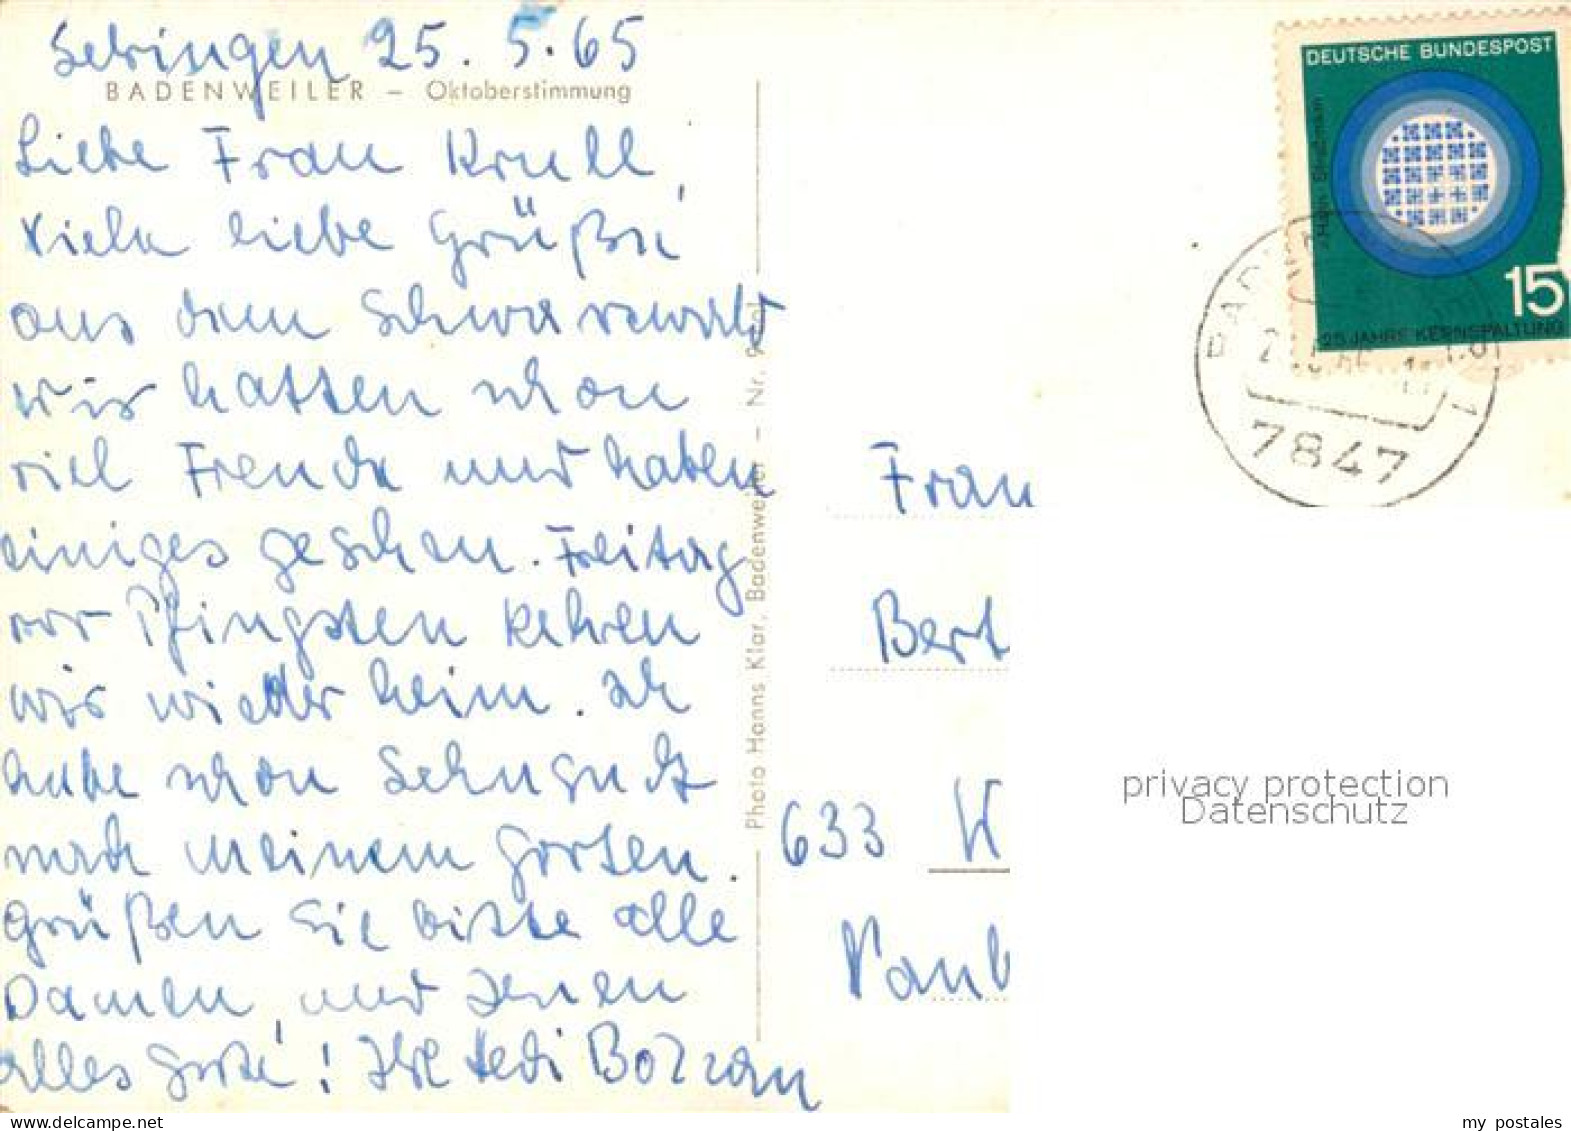 Sehringen 25. 5. 65
BADENWEILER – Oktoberstimmung
Liebe Frau Krull,
Viele liebe Grüße
aus dem Schwarzwald
wir hatten schon
viel Freude und haben
einiges gesehen. Freitag
vor Pfingsten kehren
wir wieder heim. Ich
habe schon Sehnsucht
nach meinem Garten.
Grüßen Sie bitte alle
Damen, und Ihnen
alles Gute! Ihre Hedi
Photo Hanns Klar, Badenweiler – Nr.
DEUTSCHE BUNDESPOST
15
25 JAHRE KERNSPALTUNG
7847
Frau
Bert
633 W
privacy protection
Datenschutz
my_postales